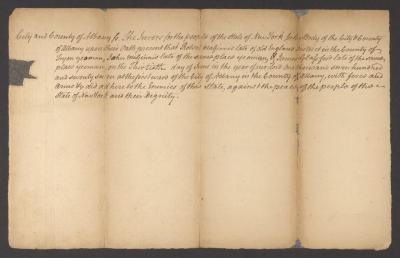 City and County of Albany ss. The Jurors for the people of the State of New York for the Body of the City & County
of Albany upon their Oath present that Robert late of old England District in the County of
Tryon yeoman, John late of the same place yeoman, & late of the same
place yeoman, on the Thirtieth day of June in the year of our Lord one thousand seven hundred
and seventy seven at the first ward of the City of Albany in the County of Albany, with force and
Arms did adhere to the Enemies of this State, against the peace of the people of the
State of New York and their Dignity.